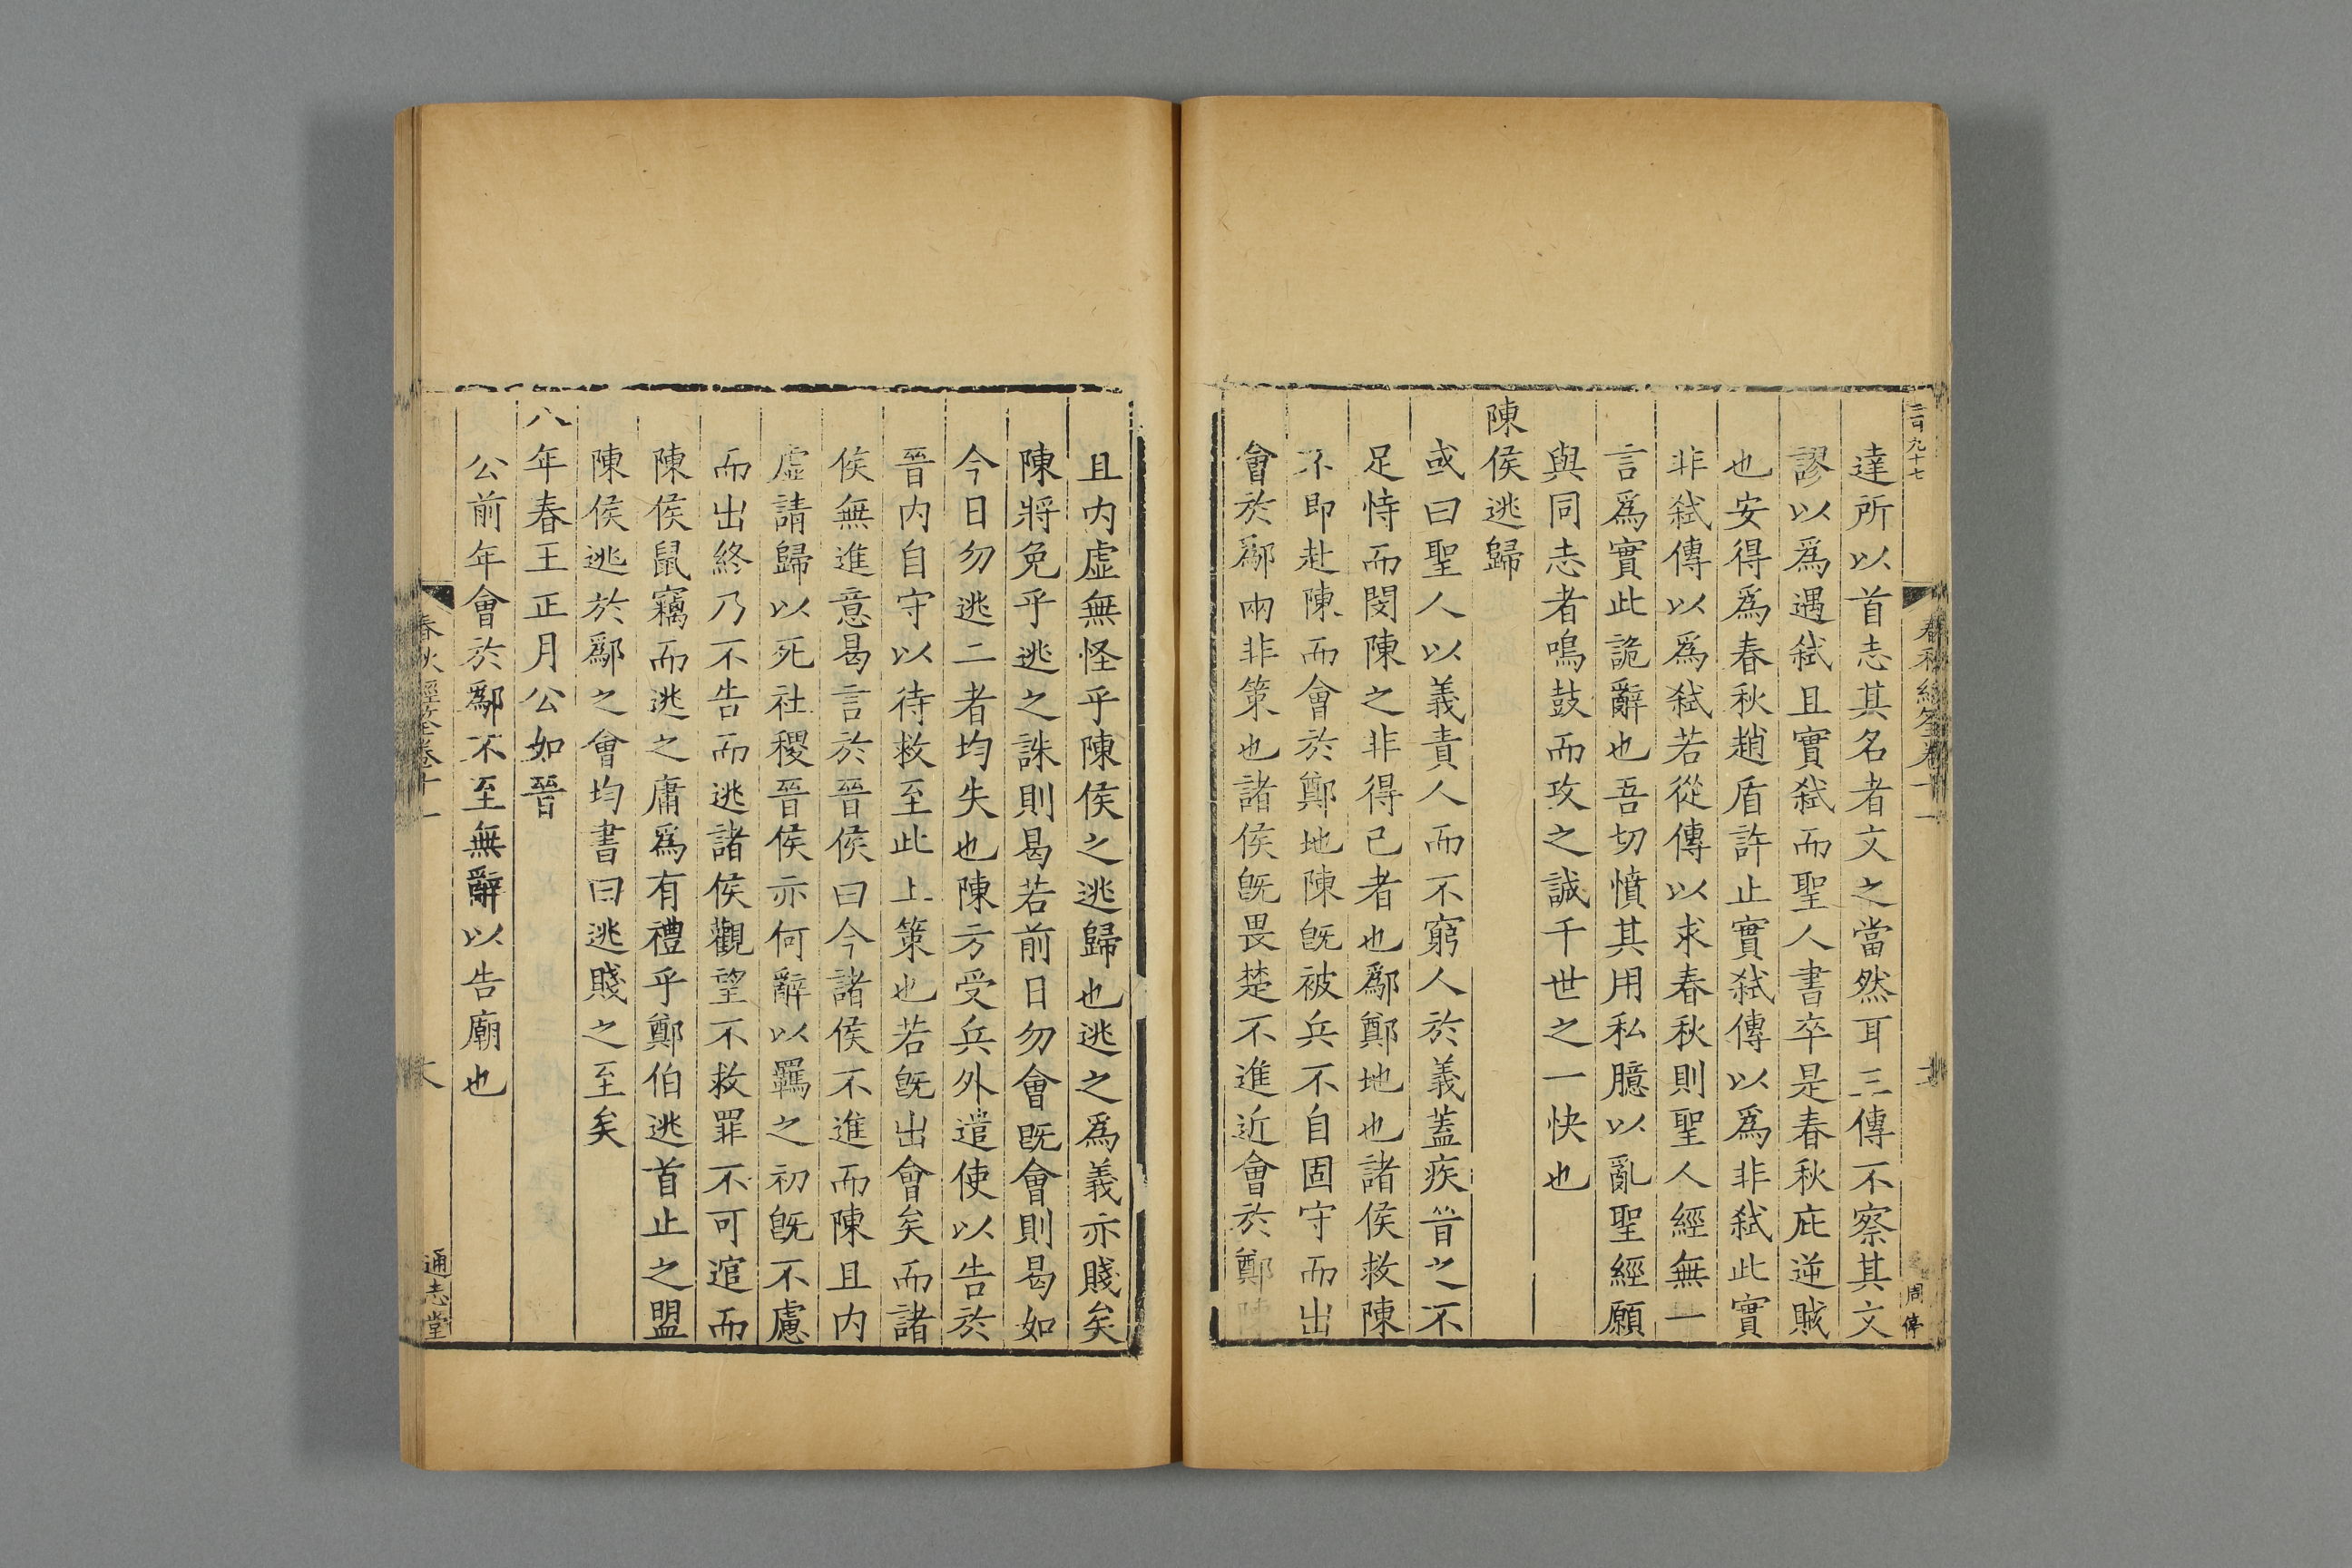 言九十七
達所以首志其名者文之當然耳三傳不察其文
謬以爲遇弒且實弒而聖人書卒是春秋庇逆賊
也安得爲春秋趙盾許止實弒傳以爲非弒此實
非弒傳以爲弒若從傳以求春秋則聖人經無一
言爲實此詭辭也吾切憤其用私臆以亂聖經願
與同志者鳴鼓而攻之誠千世之一快也
陳侯逃歸
或曰聖人以義責人而不窮人於義蓋疾晉之不
足恃而閔陳之非得已者也鄬鄭地也諸侯救陳
不即赴陳而會於鄭地陳旣被兵不自固守而出
會於鄬兩非策也諸侯旣畏楚不進近會於鄭
且内虚無怪乎陳侯之逃歸也逃之爲義亦賤矣
陳將免乎逃之誅則曷若前日勿會旣會則曷如
今日勿逃二者均失也陳方受兵外遣使以告於
晉内自守以待救至此上策也若旣出會矣而諸
侯無進意曷言於晉晉侯曰今諸侯不進而陳且内
虚請歸以死社稷晉侯亦何辭以羈之初旣不慮
而出終乃不告而逃諸侯觀望不救罪不可逭而
陳侯鼠竊而逃之庸爲有禮乎鄭伯逃首止之盟
陳侯逃於鄬之會均書曰逃賤之至矣
八年春王正月公如晉
公前年會於鄬不至無辭以告廟也
春秋經筌卷十一
通志堂